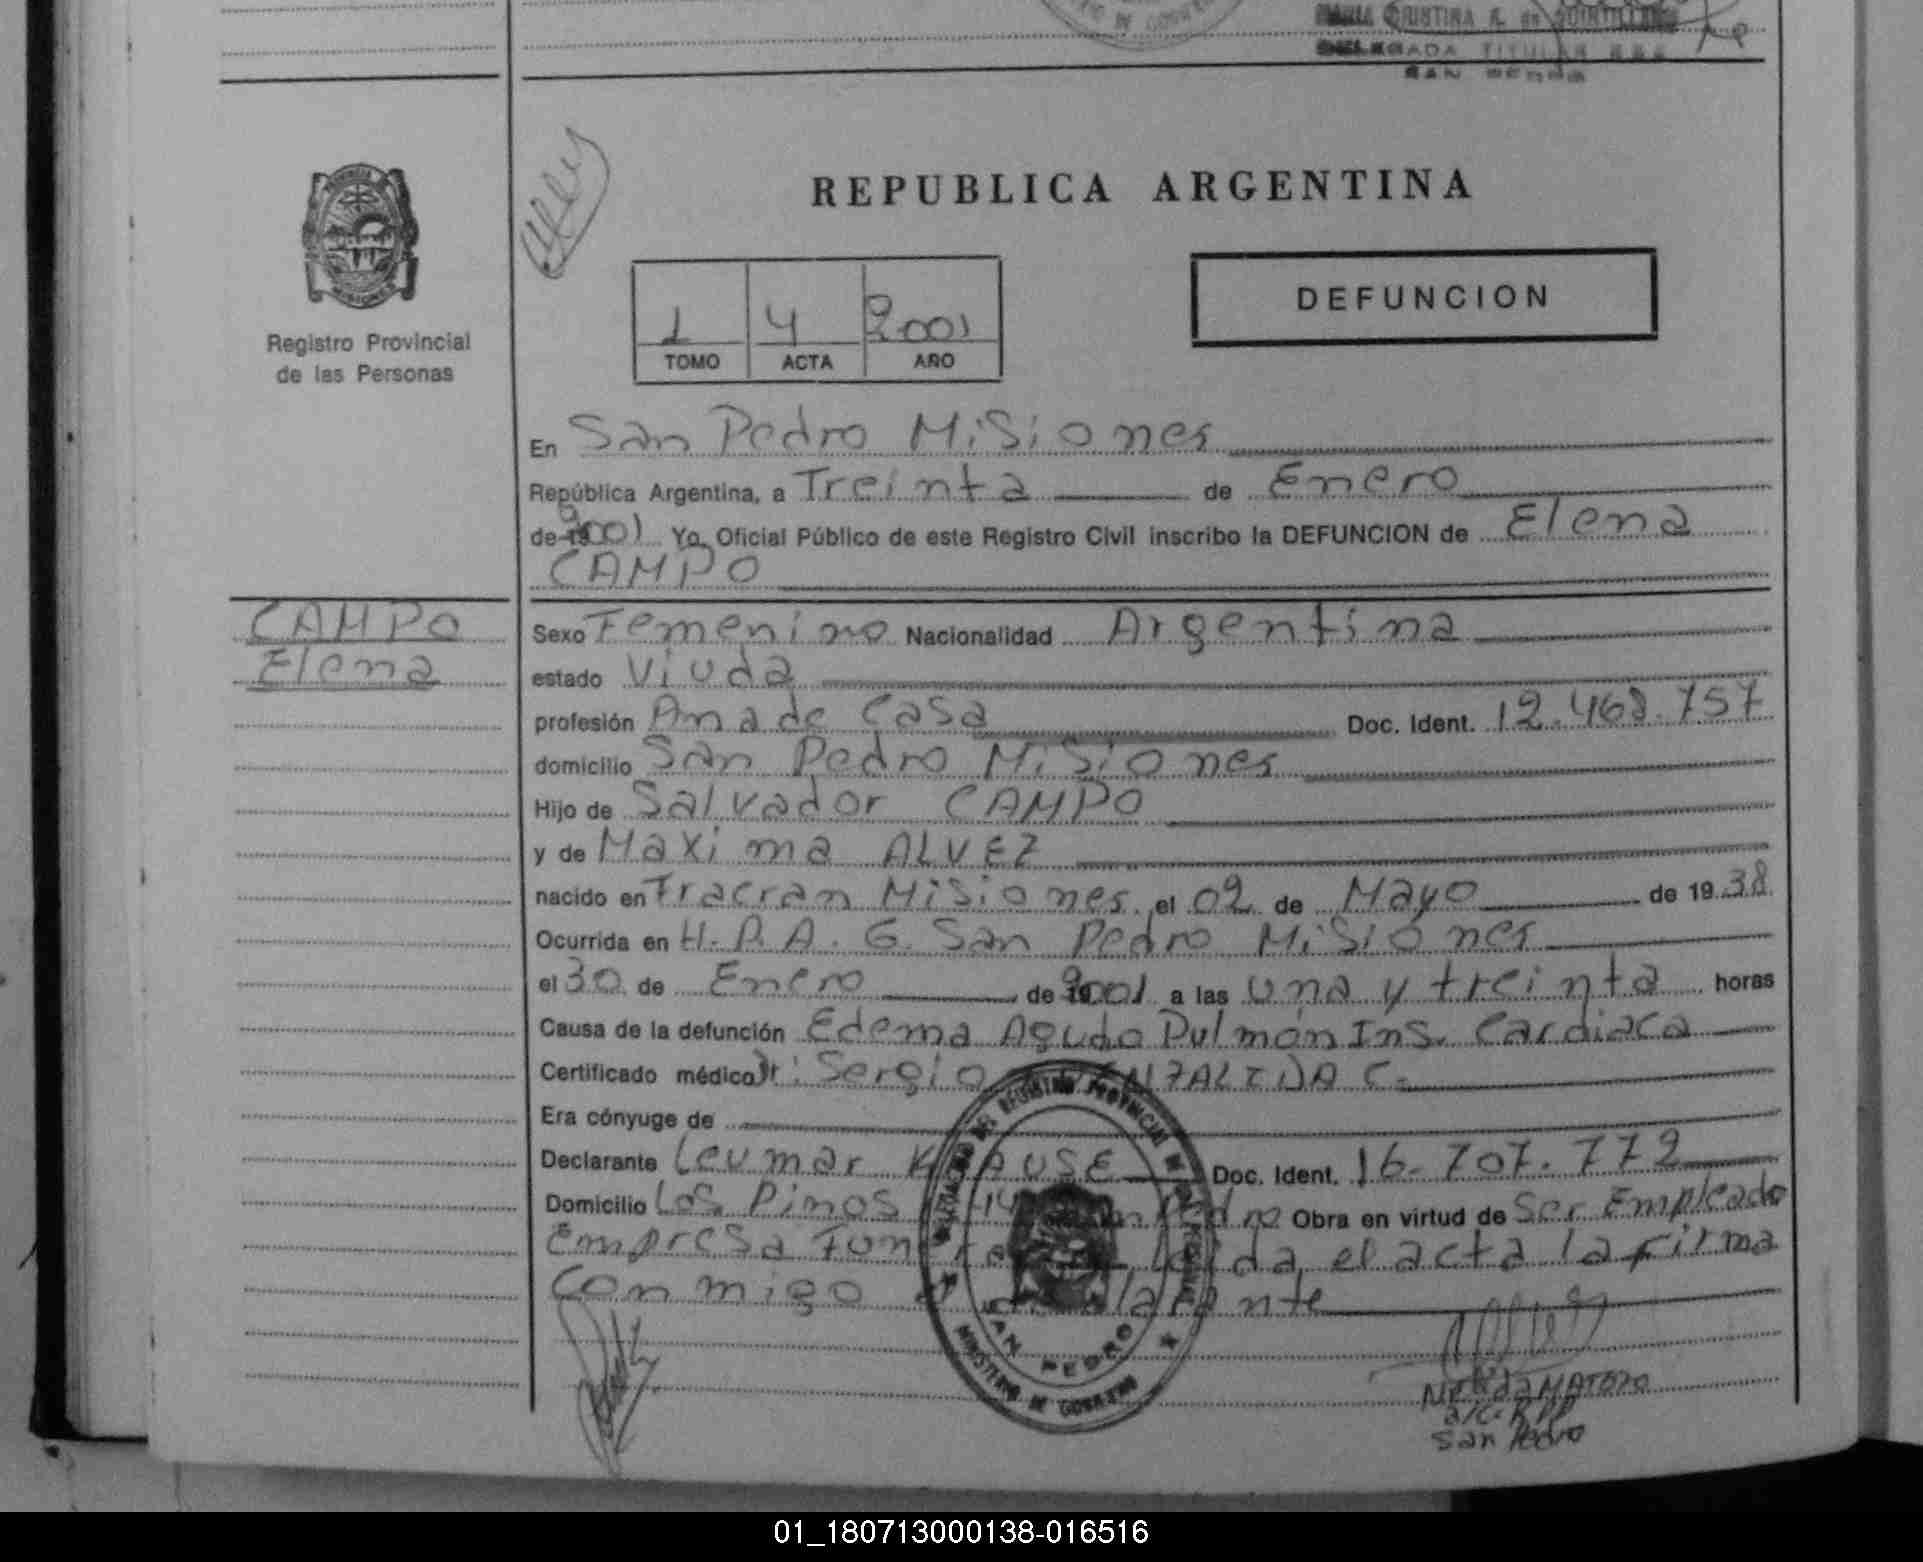 MARIA CRISTINA A. de QUINTILLAN
DELEGADA TITULAR
SAN PEDRO
REPUBLICA ARGENTINA
DEFUNCION
1 4 2001
TOMO ACTA AÑO
Registro Provincial
de las Personas
En San Pedro Misiones
República Argentina, a Treinta de Enero
de 2001 Yo, Oficial Público de este Registro Civil inscribo la DEFUNCION de Elena
CAMPO
CAMPO
Elena
Sexo Femenino Nacionalidad Argentina
estado Viuda
profesión Ama de Casa Doc. Ident. 12.468.757
domicilio San Pedro Misiones
Hijo de Salvador CAMPO
y de Maxima ALVEZ
nacido en Fracran Misiones el 02 de Mayo de 1938
Ocurrida en H.P.A.G. San Pedro Misiones
el 30 de Enero de 2001 a las una y treinta horas
Causa de la defunción Edema Agudo Pulmón Ins. Cardiaca
Certificado médico Dr: Sergio C.
Era cónyuge de
Declarante Leumar KRAUSE Doc. Ident. 16.707.772
Domicilio Los Pinos San Pedro Obra en virtud de Ser Empleado
Empresa Funeraria Leida el acta la firma
conmigo el declarante
DELEGACION DEL REGISTRO PROVINCIAL DE LAS PERSONAS
SAN PEDRO
MINISTERIO DE GOBIERNO
MATOZO
a/c. R.P.P
San Pedro
01_180713000138-016516